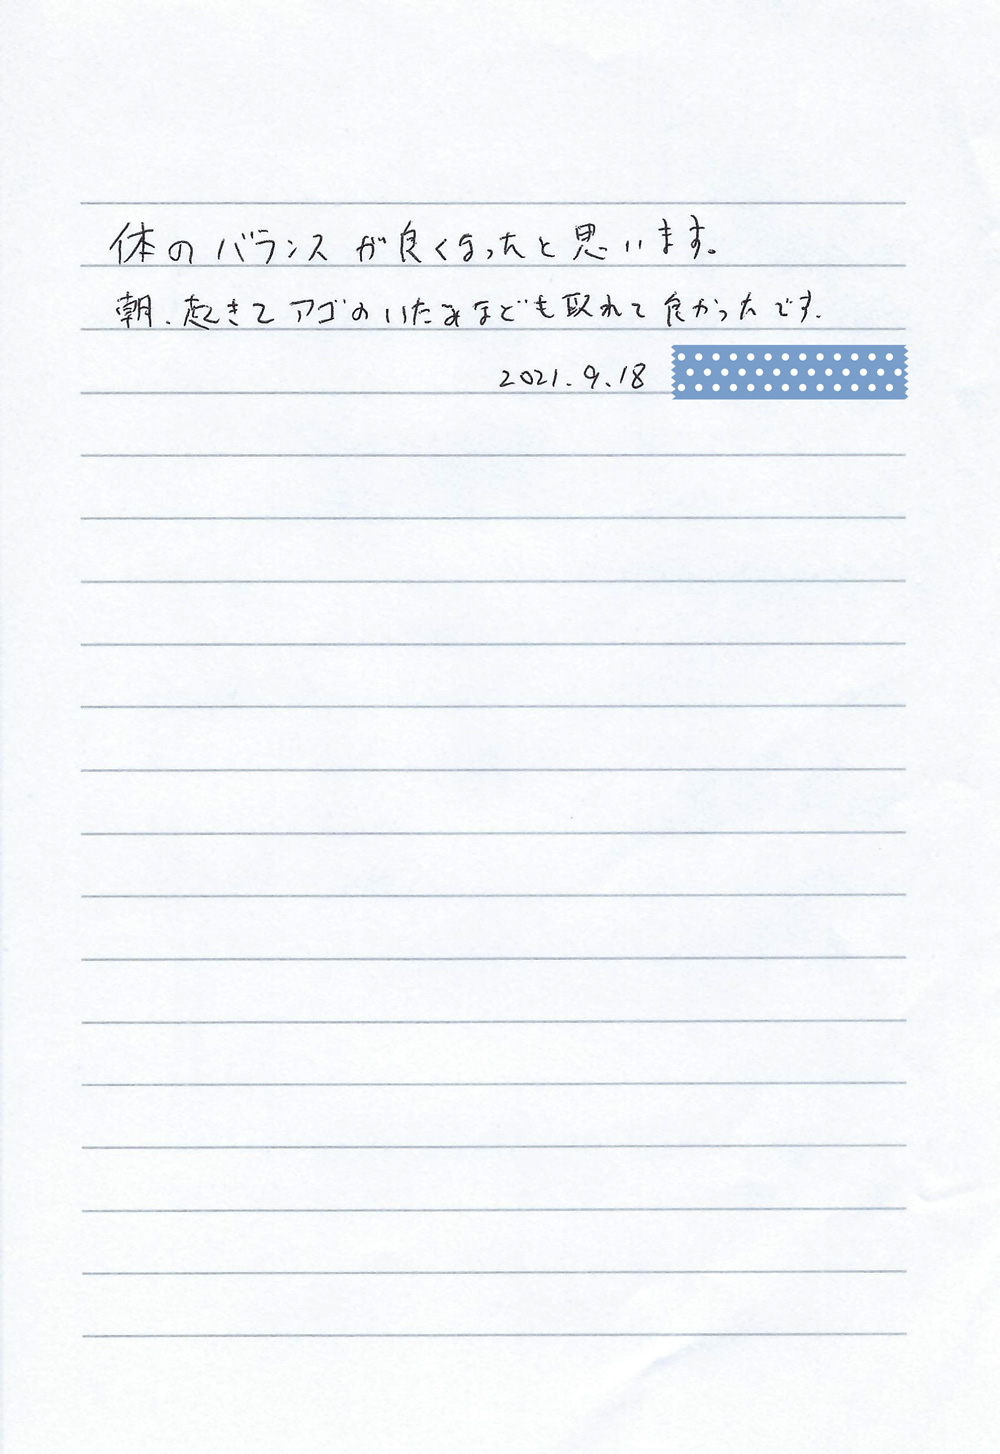 体のバランスが良くなったと思います。
朝、起きてアゴのいたみなども取れて良かったです.
2021.9.18